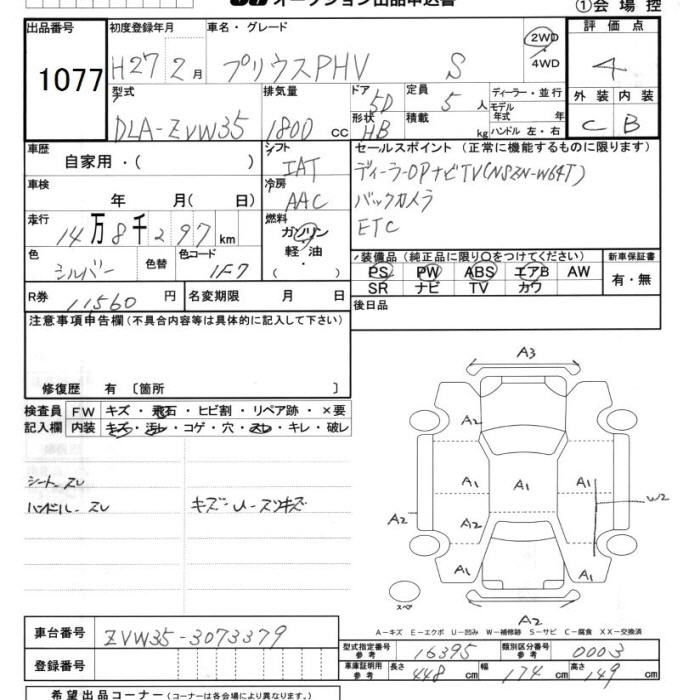 オークション出品申込書
①会場控
出品番号 初度登録年月 車名・グレード 2WD 評価点
1077 H27 2月 プリウスPHV S 4WD 4
型式 排気量 ドア 5D 定員 5人 ディーラー・並行 外装 内装
DLA-ZVW35 1800cc 形状 HB 積載 kg モデル年式 年 ハンドル 左・右 C B
車歴 自家用・( ) シフト IAT セールスポイント (正常に機能するものに限ります)
車検 年 月( 日) 冷房 AAC ディーラーOPナビTV(NSZN-W64T)
バックカメラ
走行 14万8千297km 燃料 ガソリン ETC
色 シルバー 色替 色コード 1F7 軽油・( )
装備品 (純正品に限り○をつけてください) 新車保証書
PS PW ABS エアB AW 有・無
SR ナビ TV カワ
R券 11560円 名変期限 月 日 後日品
注意事項申告欄 (不具合内容等は具体的に記入して下さい)
修復歴 有〔箇所 〕
検査員 FW キズ・飛石・ヒビ割・リペア跡・×要
記入欄 内装 キズ・汚レ・コゲ・穴・スレ・キレ・破レ
シート ズレ
ハンドル ズレ キズ・U・スリキズ
A3
A2
A1 A1 A1 W2
A2 A2
A1 A1
スペア A2
A-キズ E-エクボ U-凹み W-補修跡 S-サビ C-腐食 XX-交換済
車台番号 ZVW35-3073379
型式指定番号 参考 16395 類別区分番号 参考 0003
登録番号 車庫証明用 参考 長さ 448cm 幅 174cm 高さ 149cm
希望出品コーナー (コーナーは各会場により異なります。)